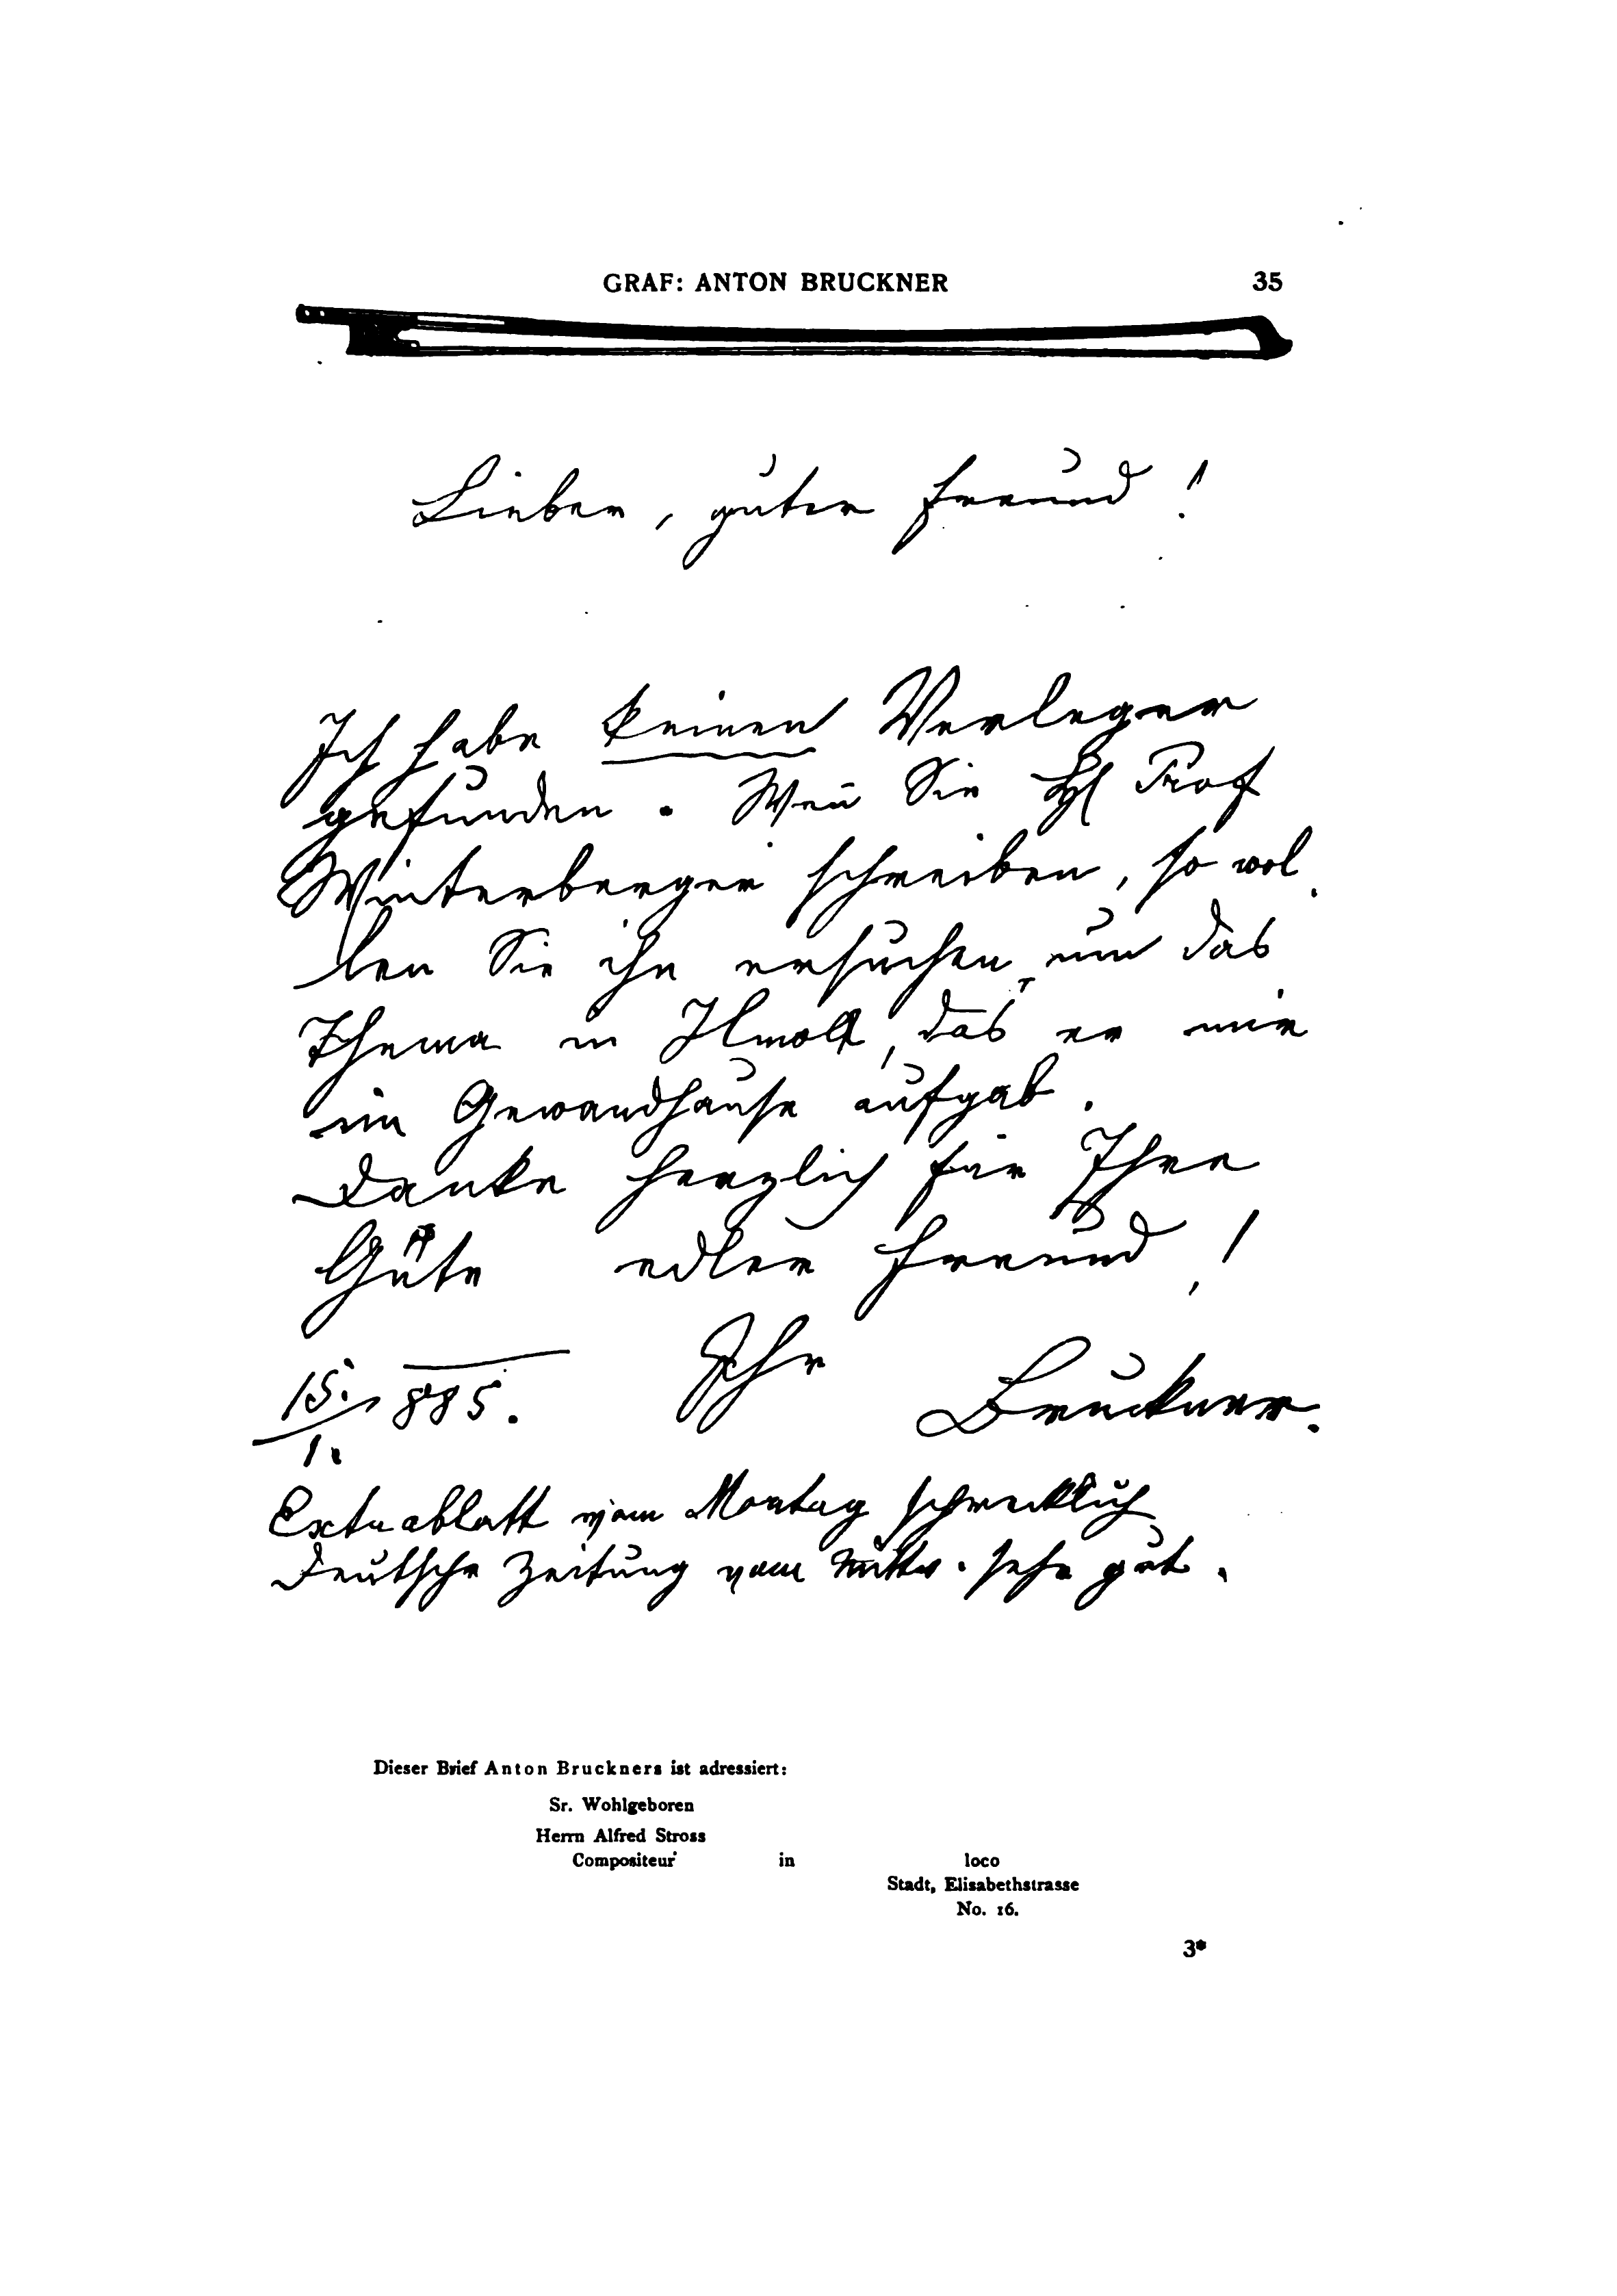 GRAF: ANTON BRUCKNER 35
Lieber, guter Freund!
Ich habe keinen Verleger
gefunden. Weñ Sie H Prof
Winterberger schreiben, so wol
len Sie ihn ersuchen um das
Thema in Hmoll, das er mir
im Gewandhause aufgab.
Danke herzlich für Ihre
Güte edler Freund!
15./1. 885. Ihr Bruckner.
Extrablatt vom Montag schrecklich
Deutsche Zeitung vom Mittw. sehr gut.
Dieser Brief Anton Bruckners ist adressiert:
Sr. Wohlgeboren
Herrn Alfred Stross
Compositeur in loco
Stadt, Elisabethstrasse
No. 16.
3*